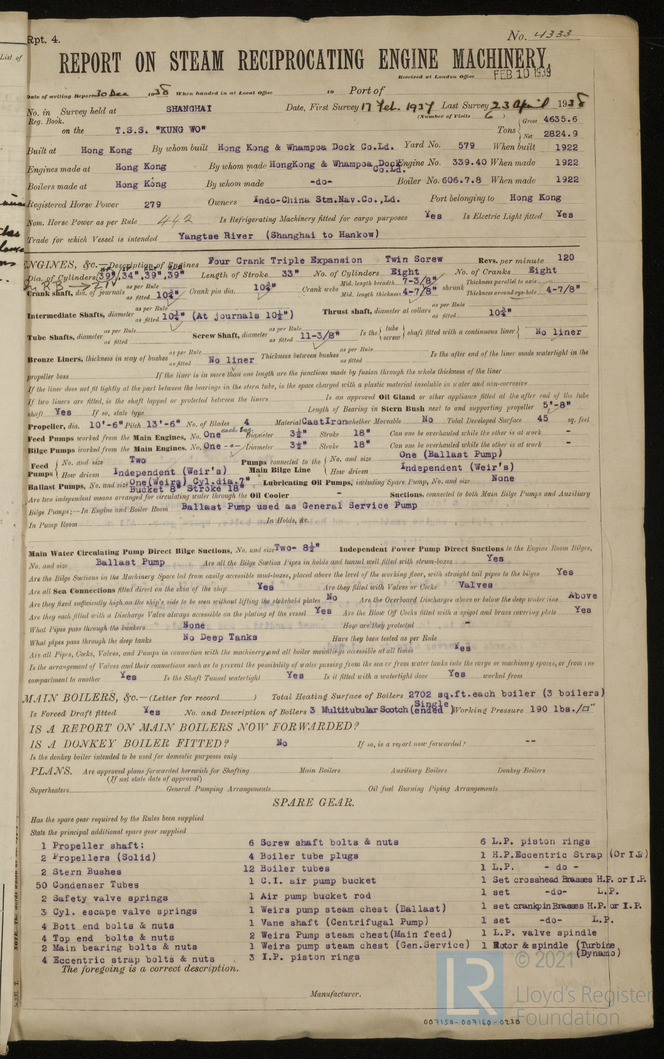 Rpt. 4.
No. 4333
REPORT ON STEAM RECIPROCATING ENGINE MACHINERY.
Received at London Office FEB 10 1939
Date of writing Report 30 Dec 1938 When handed in at Local Office 19 Port of
No. in Survey held at SHANGHAI Date, First Survey 17 Feb. 1937 Last Survey 23 April 1938
Reg. Book. (Number of Visits 6)
on the T.S.S. "KUNG WO" Tons Gross 4635.6 Net 2824.9
Built at Hong Kong By whom built Hong Kong & Whampoa Dock Co.Ld. Yard No. 579 When built 1922
Engines made at Hong Kong By whom made HongKong & Whampoa Dock Co.Ld. Engine No. 339.40 When made 1922
Boilers made at Hong Kong By whom made -do- Boiler No. 606.7.8 When made 1922
Registered Horse Power 279 Owners Indo-China Stm.Nav.Co.,Ld. Port belonging to Hong Kong
Nom. Horse Power as per Rule 442 Is Refrigerating Machinery fitted for cargo purposes Yes Is Electric Light fitted Yes
Trade for which Vessel is intended Yangtse River (Shanghai to Hankow)
ENGINES, &c.—Description of Engines Four Crank Triple Expansion Twin Screw Revs. per minute 120
Dia. of Cylinders 39", 34", 39", 39" Length of Stroke 33" No. of Cylinders Eight No. of Cranks Eight
Crank shaft, dia. of journals as per Rule as fitted 10¾" Crank pin dia. 10¾" Crank webs Mid. length breadth 7-3/8" Mid. length thickness 4-7/8" shrunk Thickness parallel to axis Thickness around eye-hole 4-7/8"
Intermediate Shafts, diameter as per Rule as fitted 10¼" (At journals 10½") Thrust shaft, diameter at collars as per Rule as fitted 10¾"
Tube Shafts, diameter as per Rule as fitted Screw Shaft, diameter as per Rule as fitted 11-3/8" Is the tube screw shaft fitted with a continuous liner No liner
Bronze Liners, thickness in way of bushes as per Rule as fitted No liner Thickness between bushes as per Rule as fitted Is the after end of the liner made watertight in the
propeller boss If the liner is in more than one length are the junctions made by fusion through the whole thickness of the liner
If the liner does not fit tightly at the part between the bearings in the stern tube, is the space charged with a plastic material insoluble in water and non-corrosive
If two liners are fitted, is the shaft lapped or protected between the liners Is an approved Oil Gland or other appliance fitted at the after end of the tube
shaft Yes If so, state type Length of Bearing in Stern Bush next to and supporting propeller 5'-8"
Propeller, dia. 10'-6" Pitch 13'-6" No. of Blades 4 Material CastIron whether Moveable No Total Developed Surface 45 sq. feet
Feed Pumps worked from the Main Engines, No. One each eng. Diameter 3½" Stroke 18" Can one be overhauled while the other is at work -
Bilge Pumps worked from the Main Engines, No. One -"- Diameter 3½" Stroke 18" Can one be overhauled while the other is at work -
Feed Pumps No. and size Two Pumps connected to the Main Bilge Line No. and size One (Ballast Pump)
How driven Independent (Weir's) How driven Independent (Weir's)
Ballast Pumps, No. and size One(Weirs) Cyl.dia.7" Bucket 8" Stroke 18" Lubricating Oil Pumps, including Spare Pump, No. and size None
Are two independent means arranged for circulating water through the Oil Cooler - Suctions, connected to both Main Bilge Pumps and Auxiliary
Bilge Pumps;—In Engine and Boiler Room Ballast Pump used as General Service Pump
In Pump Room In Holds, &c.
Main Water Circulating Pump Direct Bilge Suctions, No. and size Two- 8½" Independent Power Pump Direct Suctions to the Engine Room Bilges,
No. and size Ballast Pump Are all the Bilge Suction Pipes in holds and tunnel well fitted with strum-boxes Yes
Are the Bilge Suctions in the Machinery Space led from easily accessible mud-boxes, placed above the level of the working floor, with straight tail pipes to the bilges Yes
Are all Sea Connections fitted direct on the skin of the ship Yes Are they fitted with Valves or Cocks Valves
Are they fixed sufficiently high on the ship's side to be seen without lifting the stokehold plates No Are the Overboard Discharges above or below the deep water line Above
Are they each fitted with a Discharge Valve always accessible on the plating of the vessel Yes Are the Blow Off Cocks fitted with a spigot and brass covering plate Yes
What Pipes pass through the bunkers None How are they protected -
What pipes pass through the deep tanks No Deep Tanks Have they been tested as per Rule
Are all Pipes, Cocks, Valves, and Pumps in connection with the machinery and all boiler mountings accessible at all times Yes
Is the arrangement of Valves and their connections such as to prevent the possibility of water passing from the sea or from water tanks into the cargo or machinery spaces, or from one
compartment to another Yes Is the Shaft Tunnel watertight Yes Is it fitted with a watertight door Yes worked from
MAIN BOILERS, &c.—(Letter for record ) Total Heating Surface of Boilers 2702 sq.ft.each boiler (3 boilers)
Is Forced Draft fitted Yes No. and Description of Boilers 3 Multitubular Scotch (Single ended) Working Pressure 190 lbs./□"
IS A REPORT ON MAIN BOILERS NOW FORWARDED?
IS A DONKEY BOILER FITTED? No If so, is a report now forwarded? --
Is the donkey boiler intended to be used for domestic purposes only
PLANS. Are approved plans forwarded herewith for Shafting Main Boilers Auxiliary Boilers Donkey Boilers
(If not state date of approval)
Superheaters General Pumping Arrangements Oil fuel Burning Piping Arrangements
SPARE GEAR.
Has the spare gear required by the Rules been supplied
State the principal additional spare gear supplied
1 Propeller shaft: 6 Screw shaft bolts & nuts 6 L.P. piston rings
2 Propellers (Solid) 4 Boiler tube plugs 1 H.P.Eccentric Strap (Or I.P.)
2 Stern Bushes 12 Boiler tubes 1 L.P. - do -
50 Condenser Tubes 1 C.I. air pump bucket 1 Set crosshead Brasses H.P. or I.P.
2 Safety valve springs 1 Air pump bucket rod 1 set -do- L.P.
3 Cyl. escape valve springs 1 Weirs pump steam chest (Ballast) 1 set crankpin Brasses H.P. or I.P.
4 Bott end bolts & nuts 1 Vane shaft (Centrifugal Pump) 1 set -do- L.P.
4 Top end bolts & nuts 2 Weirs Pump steam chest(Main feed) 1 L.P. valve spindle
2 Main bearing bolts & nuts 1 Weirs pump steam chest (Gen.Service) 1 Rotor & spindle (Turbine Dynamo)
4 Eccentric strap bolts & nuts 3 I.P. piston rings
The foregoing is a correct description.
Manufacturer.
© 2021
LR
Lloyd's Register
Foundation
007150-007160-0230